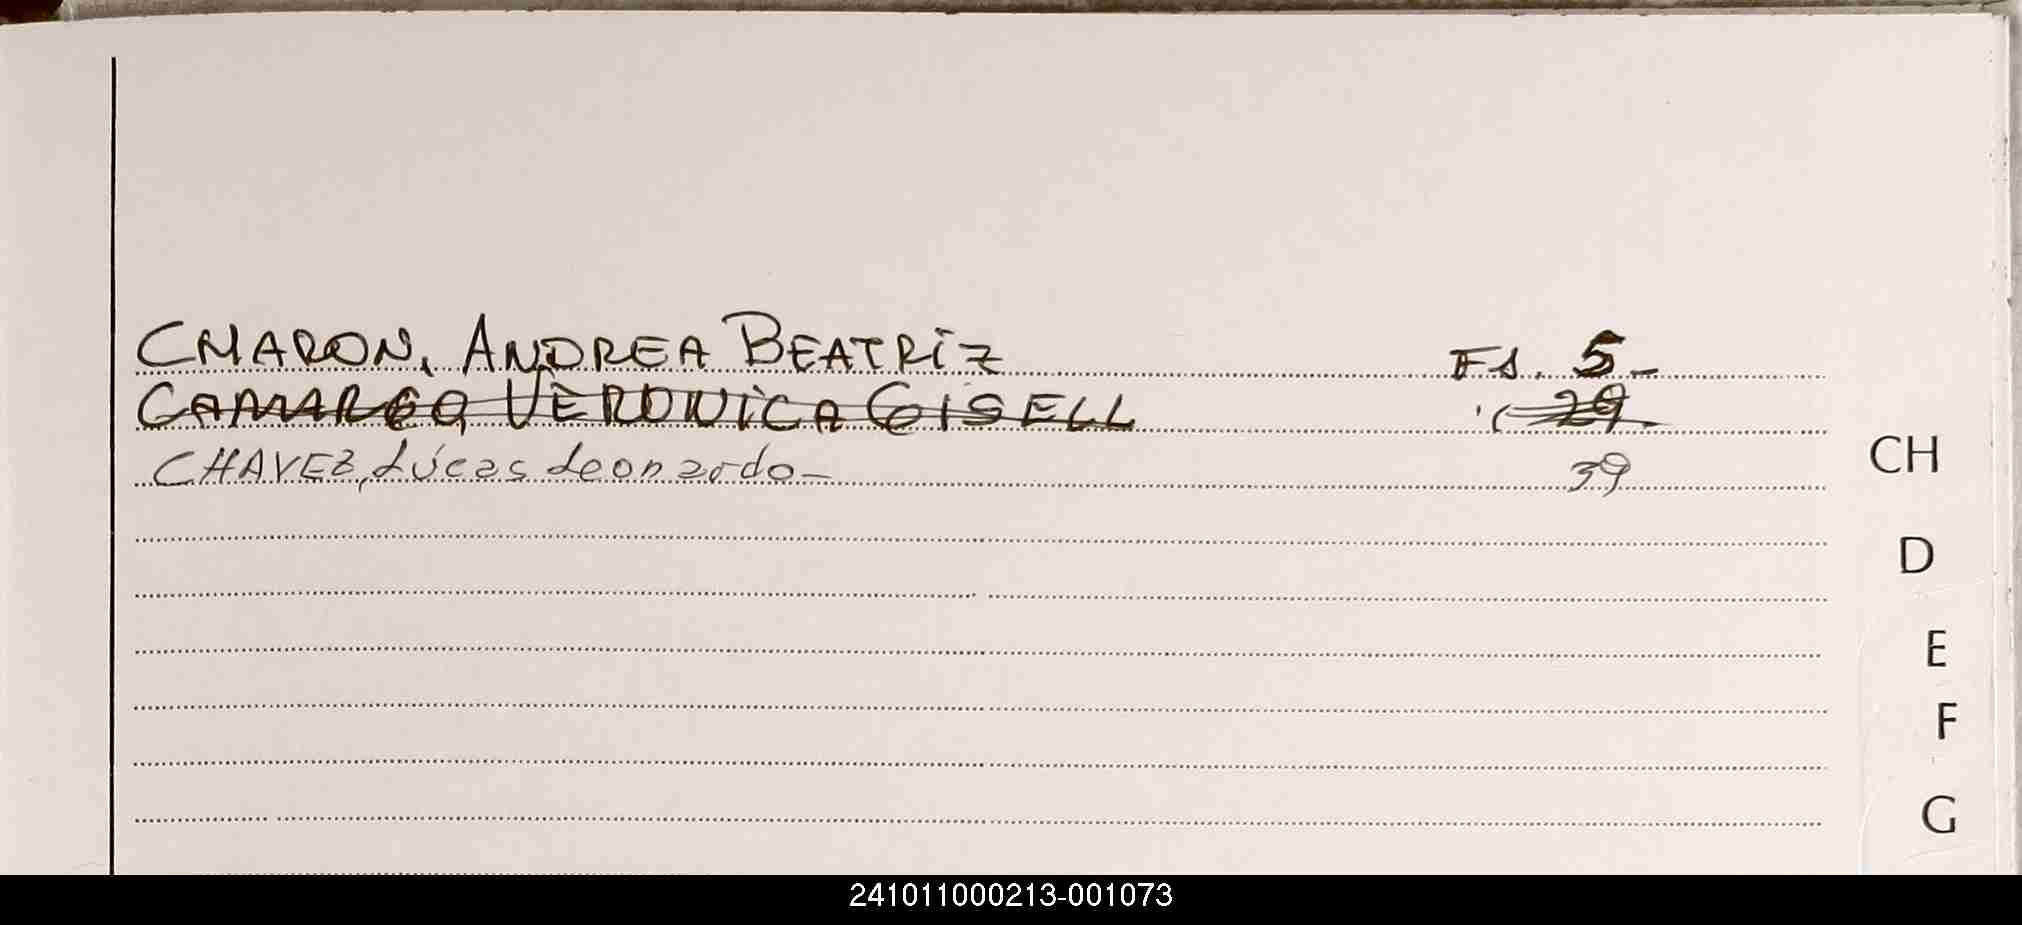 CHARON, ANDREA BEATRIZ FS. 5-
CAMARGO VERONICA GISELL " 29
CHAVEZ, Lúcas Leonardo- 39
CH
D
E
F
G
241011000213-001073